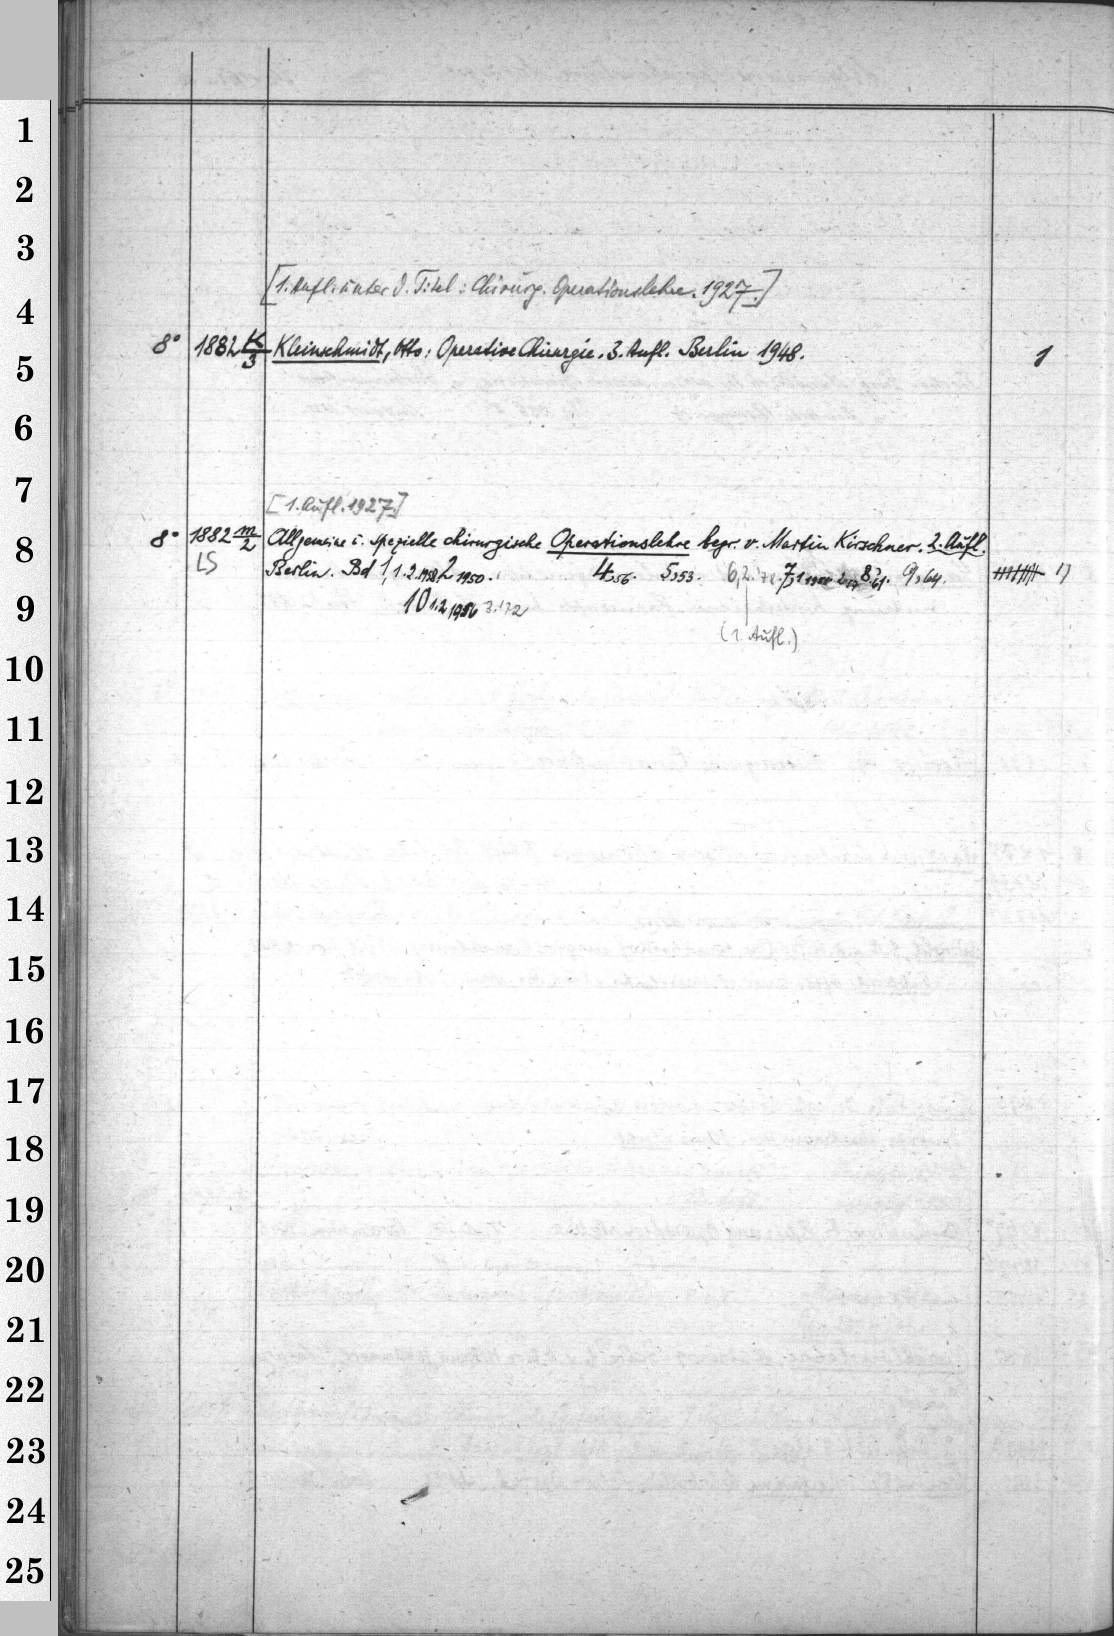 1
2
3
[1. Aufl. unter d. Titel: Chirurg. Operationslehre. 1927.]
4
8° 1882 K/3 Kleinschmidt, Otto: Operative Chirurgie. 3. Aufl. Berlin 1948. 1
5
6
7
[1. Aufl. 1927.]
8° 1882 m/2 Allgemeine u. spezielle chirurgische Operationslehre begr. v. Martin Kirschner. 2. Aufl.
8
LS Berlin. Bd 1,1.2.1958 2 1950. 4,56. 5,53. 6,2.
9
10 1.2 1956
(1. Aufl.)
10
11
12
13
14
15
16
17
18
19
20
21
22
23
24
25